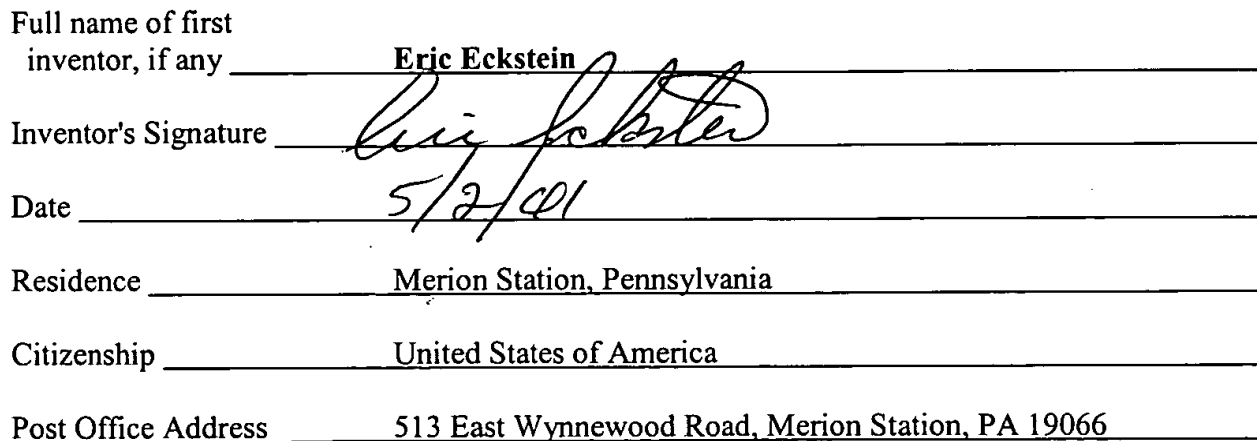 Full name of first
inventor, if any Eric Eckstein
Inventor's Signature Eric Eckstein
Date 5/2/01
Residence Merion Station, Pennsylvania
Citizenship United States of America
Post Office Address 513 East Wynnewood Road, Merion Station, PA 19066